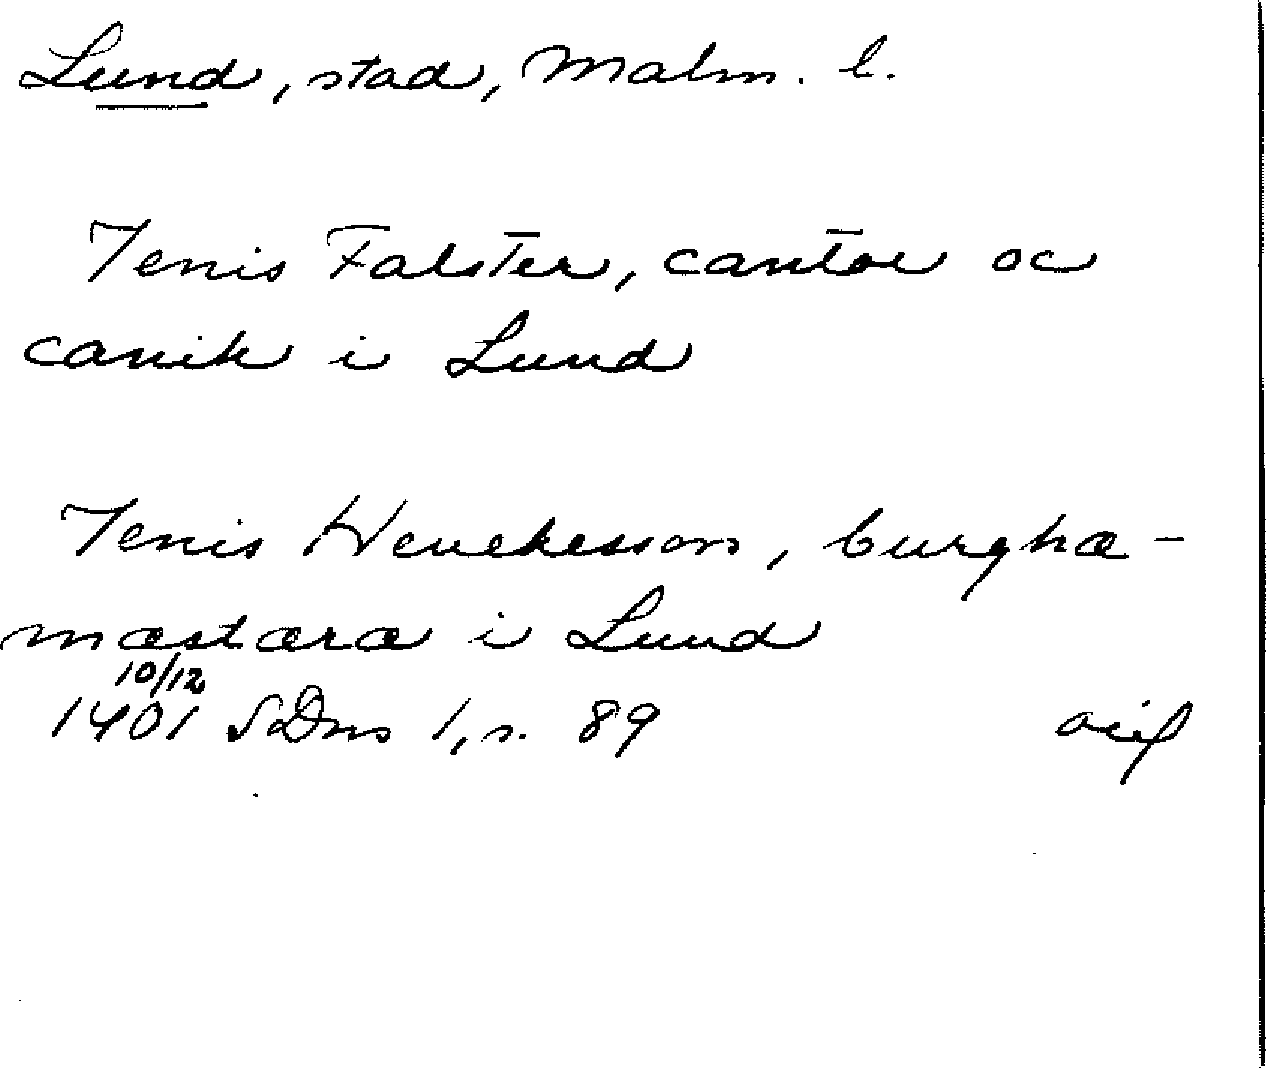 Lund, stad, Malm. l.
Jenis Falster, cantor oc
canik i Lund
Jenis Henekesson, burghæ-
mæstæræ i Lund
10/12
1401 SDns 1, s. 89